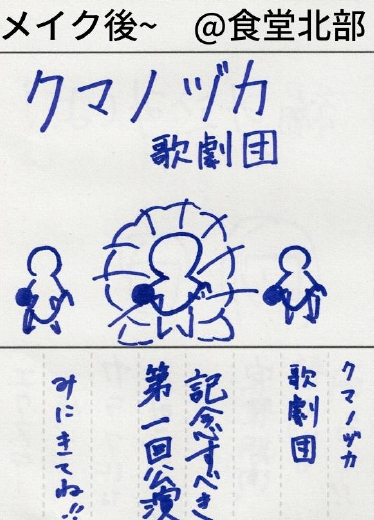 メイク後~ @食堂北部
クマノヅカ
歌劇団
クマノヅカ
歌劇団
記念すべき
第一回公演
みにきてね!!